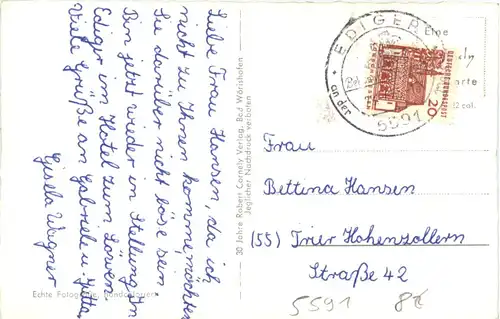 Liebe Frau Hansen, da ich
nicht zu Ihnen komme, möchten
Sie darüber nicht böse sein
Bin jetzt wieder in Stellung In
Ediger im Hotel zum Löwen.
Viele Grüße an Gabriele u. Jutta
Gisela Wagner
30 Jahre Robert Cornely Verlag, Bad Wörishofen
Jeglicher Nachdruck verboten
Echte Fotografie,
EDIGER
5591
DEUTSCHE BUNDESPOST
20
Eine
12 cal.
Frau
Bettina Hansen
(55) Trier Hohenzollern
Straße 42
5591